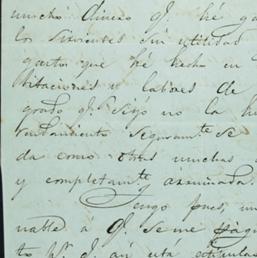 mucho dinero qe. hé ga
los sirvientes sin utilidad
gasto que hé hecho en
bitaciones y labores de
grado qe. si yó no la hu
rantamiento seguramte. se
da como otras muchas
y completamte. arruinada.
Tengo pues, un
nable a qe. se me pagu
to pr. qe. asi está estipulad